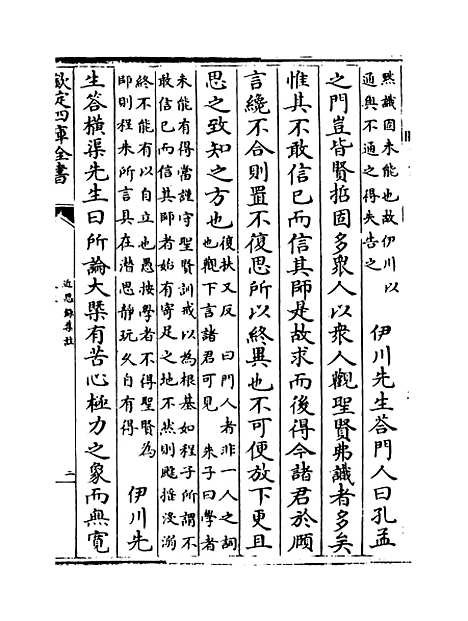 然識固未能也故伊川以
通與不通之得失告之
伊川先生荅門人曰孔孟
之門豈皆賢哲固多衆人以衆人觀聖賢弗識者多矣
惟其不敢信已而信其師是故求而後得今諸君於頤
言纔不合則置不復思所以終異也不可便放下更且
思之致知之方也
復扶又反 曰門人者非一人之詞
也觀下言諸君可見 朱子曰學者
未能有得當謹守聖賢訓戒以為根基如程子所謂不
敢信已而信其師者始有寄足之地不然則飃揺没溺
終不能有以自立也愚按學者不得聖賢為
師則程朱所言具在潜思静玩久自有得
伊川先
生荅横渠先生曰所論大槩有苦心極力之象而無寛
欽定四庫全書
近思録集註
二